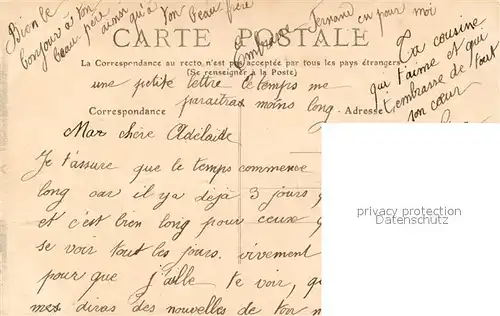 Bien le
bonjour à ton
beau père
ainsi qu'à
ton beau frère
Embrasse Fernand
en pour moi
CARTE POSTALE
La Correspondance au recto n'est pas acceptée par tous les pays étrangers
(Se renseigner à la Poste)
une petite lettre le temps me
paraitras moins long
Correspondance
Adresse
Ta cousine
qui t'aime et qui
t'embrasse de tout
son cœur
Mar chère Adélaide
Je t'assure que le temps commence
long car il y a déjà 3 jours
et c'est bien long pour ceux
se voir tout les jours. vivement
pour que j'aille te voir,
mes diras des nouvelles de ton
privacy protection
Datenschutz